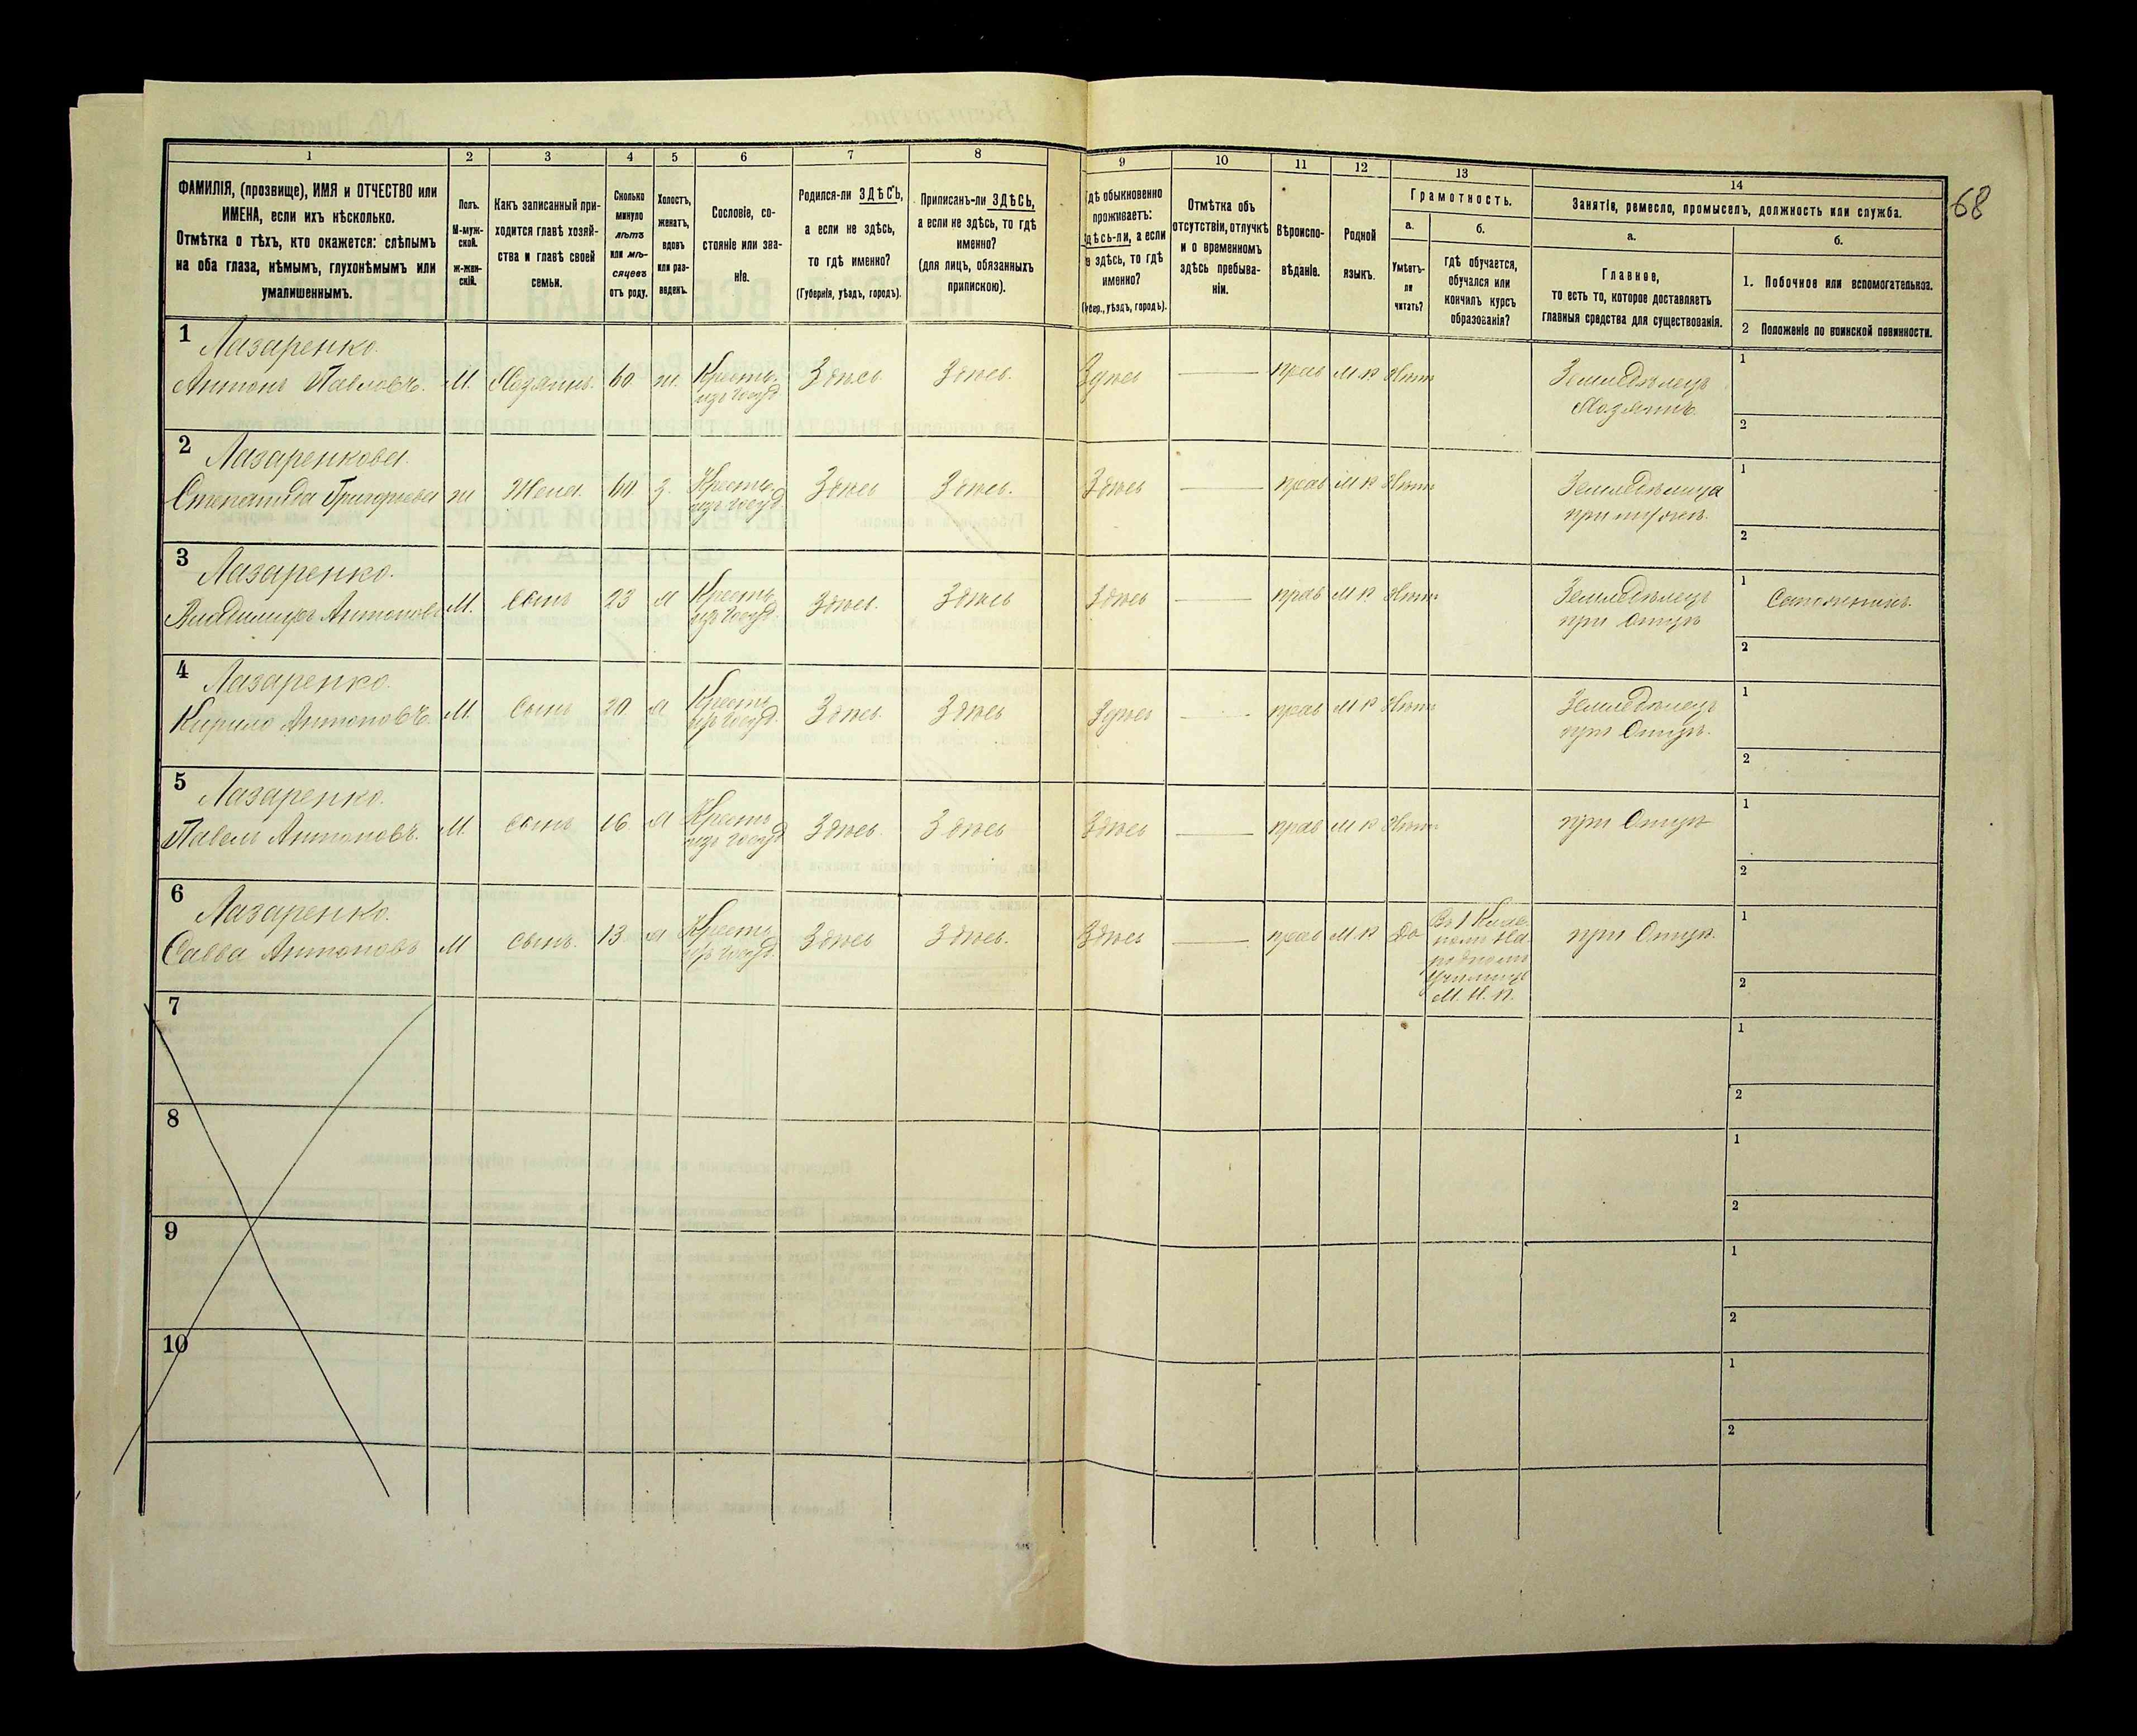 68
1
2
3
4
5
6
7
8
9
10
11
12
13
14
ФАМИЛІЯ, (прозвище), ИМЯ и ОТЧЕСТВО или
ИМЕНА, если ихъ нѣсколько.
Отмѣтка о тѣхъ, кто окажется: слѣпымъ
на оба глаза, нѣмымъ, глухонѣмымъ или
умалишеннымъ.
Полъ.
М-муж-
ской.
ж-жен-
скій.
Какъ записанный при-
ходится главѣ хозяй-
ства и главѣ своей
семьи.
Сколько
минуло
лѣтъ
или мѣ-
сяцевъ
отъ роду.
Холостъ,
женатъ,
вдовъ
или раз-
веденъ.
Сословіе, со-
стояніе или зва-
ніе.
Родился-ли ЗДѢСЬ,
а если не здѣсь,
то гдѣ именно?
(Губернія, уѣздъ, городъ).
Приписанъ-ли ЗДѢСЬ,
а если не здѣсь, то гдѣ
именно?
(для лицъ, обязанныхъ
припискою).
гдѣ обыкновенно
проживаетъ:
здѣсь-ли, а если
не здѣсь, то гдѣ
именно?
(Губер., уѣздъ, городъ).
Отмѣтка объ
отсутствіи, отлучкѣ
и о временномъ
здѣсь пребыва-
ніи.
Вѣроиспо-
вѣданіе.
Родной
языкъ.
Грамотность.
а.
Умѣетъ-
ли
читать?
б.
гдѣ обучается,
обучался или
кончилъ курсъ
образованія?
Занятіе, ремесло, промыселъ, должность или служба.
а.
Главное,
то есть то, которое доставляетъ
главныя средства для существованія.
б.
1. Побочное или вспомогательное.
2 Положеніе по воинской повинности.
1 Лазаренко.
Антонъ Павловъ. М. Хозяинъ. 60. ж. Кресть. Здѣсь Здѣсь. Здѣсь — прав М Р Нѣтъ Земледѣлецъ 1
изъ госуд Хозяинъ. 2
2 Лазаренкова.
Степанида Григорьева ж Жена. 60 з. Кресть. Здѣсь Здѣсь. Здѣсь — прав М Р Нѣтъ Земледѣлица 1
изъ госуд при мужѣ. 2
3 Лазаренко.
Владимиръ Антоновъ М. Сынъ 23 Х Кресть Здѣсь. Здѣсь Здѣсь — прав М Р Нѣтъ Земледѣлецъ 1 Сапожникъ.
изъ госуд. при Отцѣ 2
4 Лазаренко.
Кирило Антоновъ. М. Сынъ 20 Х Кресть Здѣсь. Здѣсь Здѣсь — прав М Р Нѣтъ Земледѣлецъ 1
изъ госуд. при Отцѣ. 2
5 Лазаренко.
Павелъ Антоновъ. М. Сынъ 16 Х Кресть Здѣсь. Здѣсь Здѣсь — прав М Р Нѣтъ при Отцѣ 1
изъ госуд 2
6 Лазаренко.
Савва Антоновъ М сынъ. 13 Х Кресть Здѣсь Здѣсь. Здѣсь — прав М. Р Да при Отцѣ. 1
изъ госуд. 2
Въ 1 Клас.
родномъ
Училищѣ
М. Н. П.
7
1
2
8
1
2
9
1
2
10
1
2